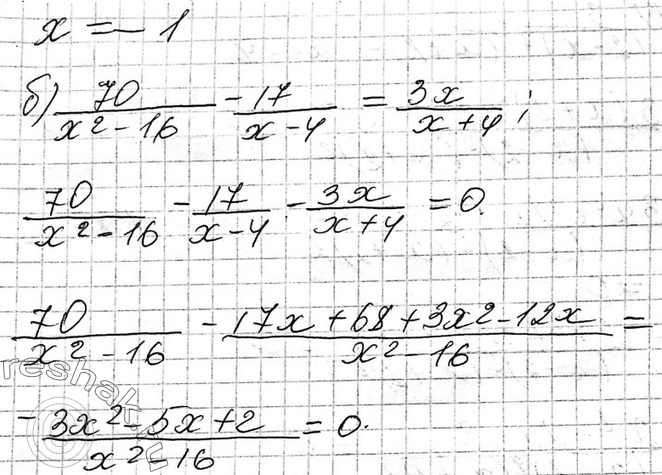 x = -1
б) 70/(x²-16) - 17/(x-4) = 3x/(x+4);
70/(x²-16) - 17/(x-4) - 3x/(x+4) = 0.
70/(x²-16) - (17x+68+3x²-12x)/(x²-16) =
- (3x²-5x+2)/(x²-16) = 0.
reshak.ru